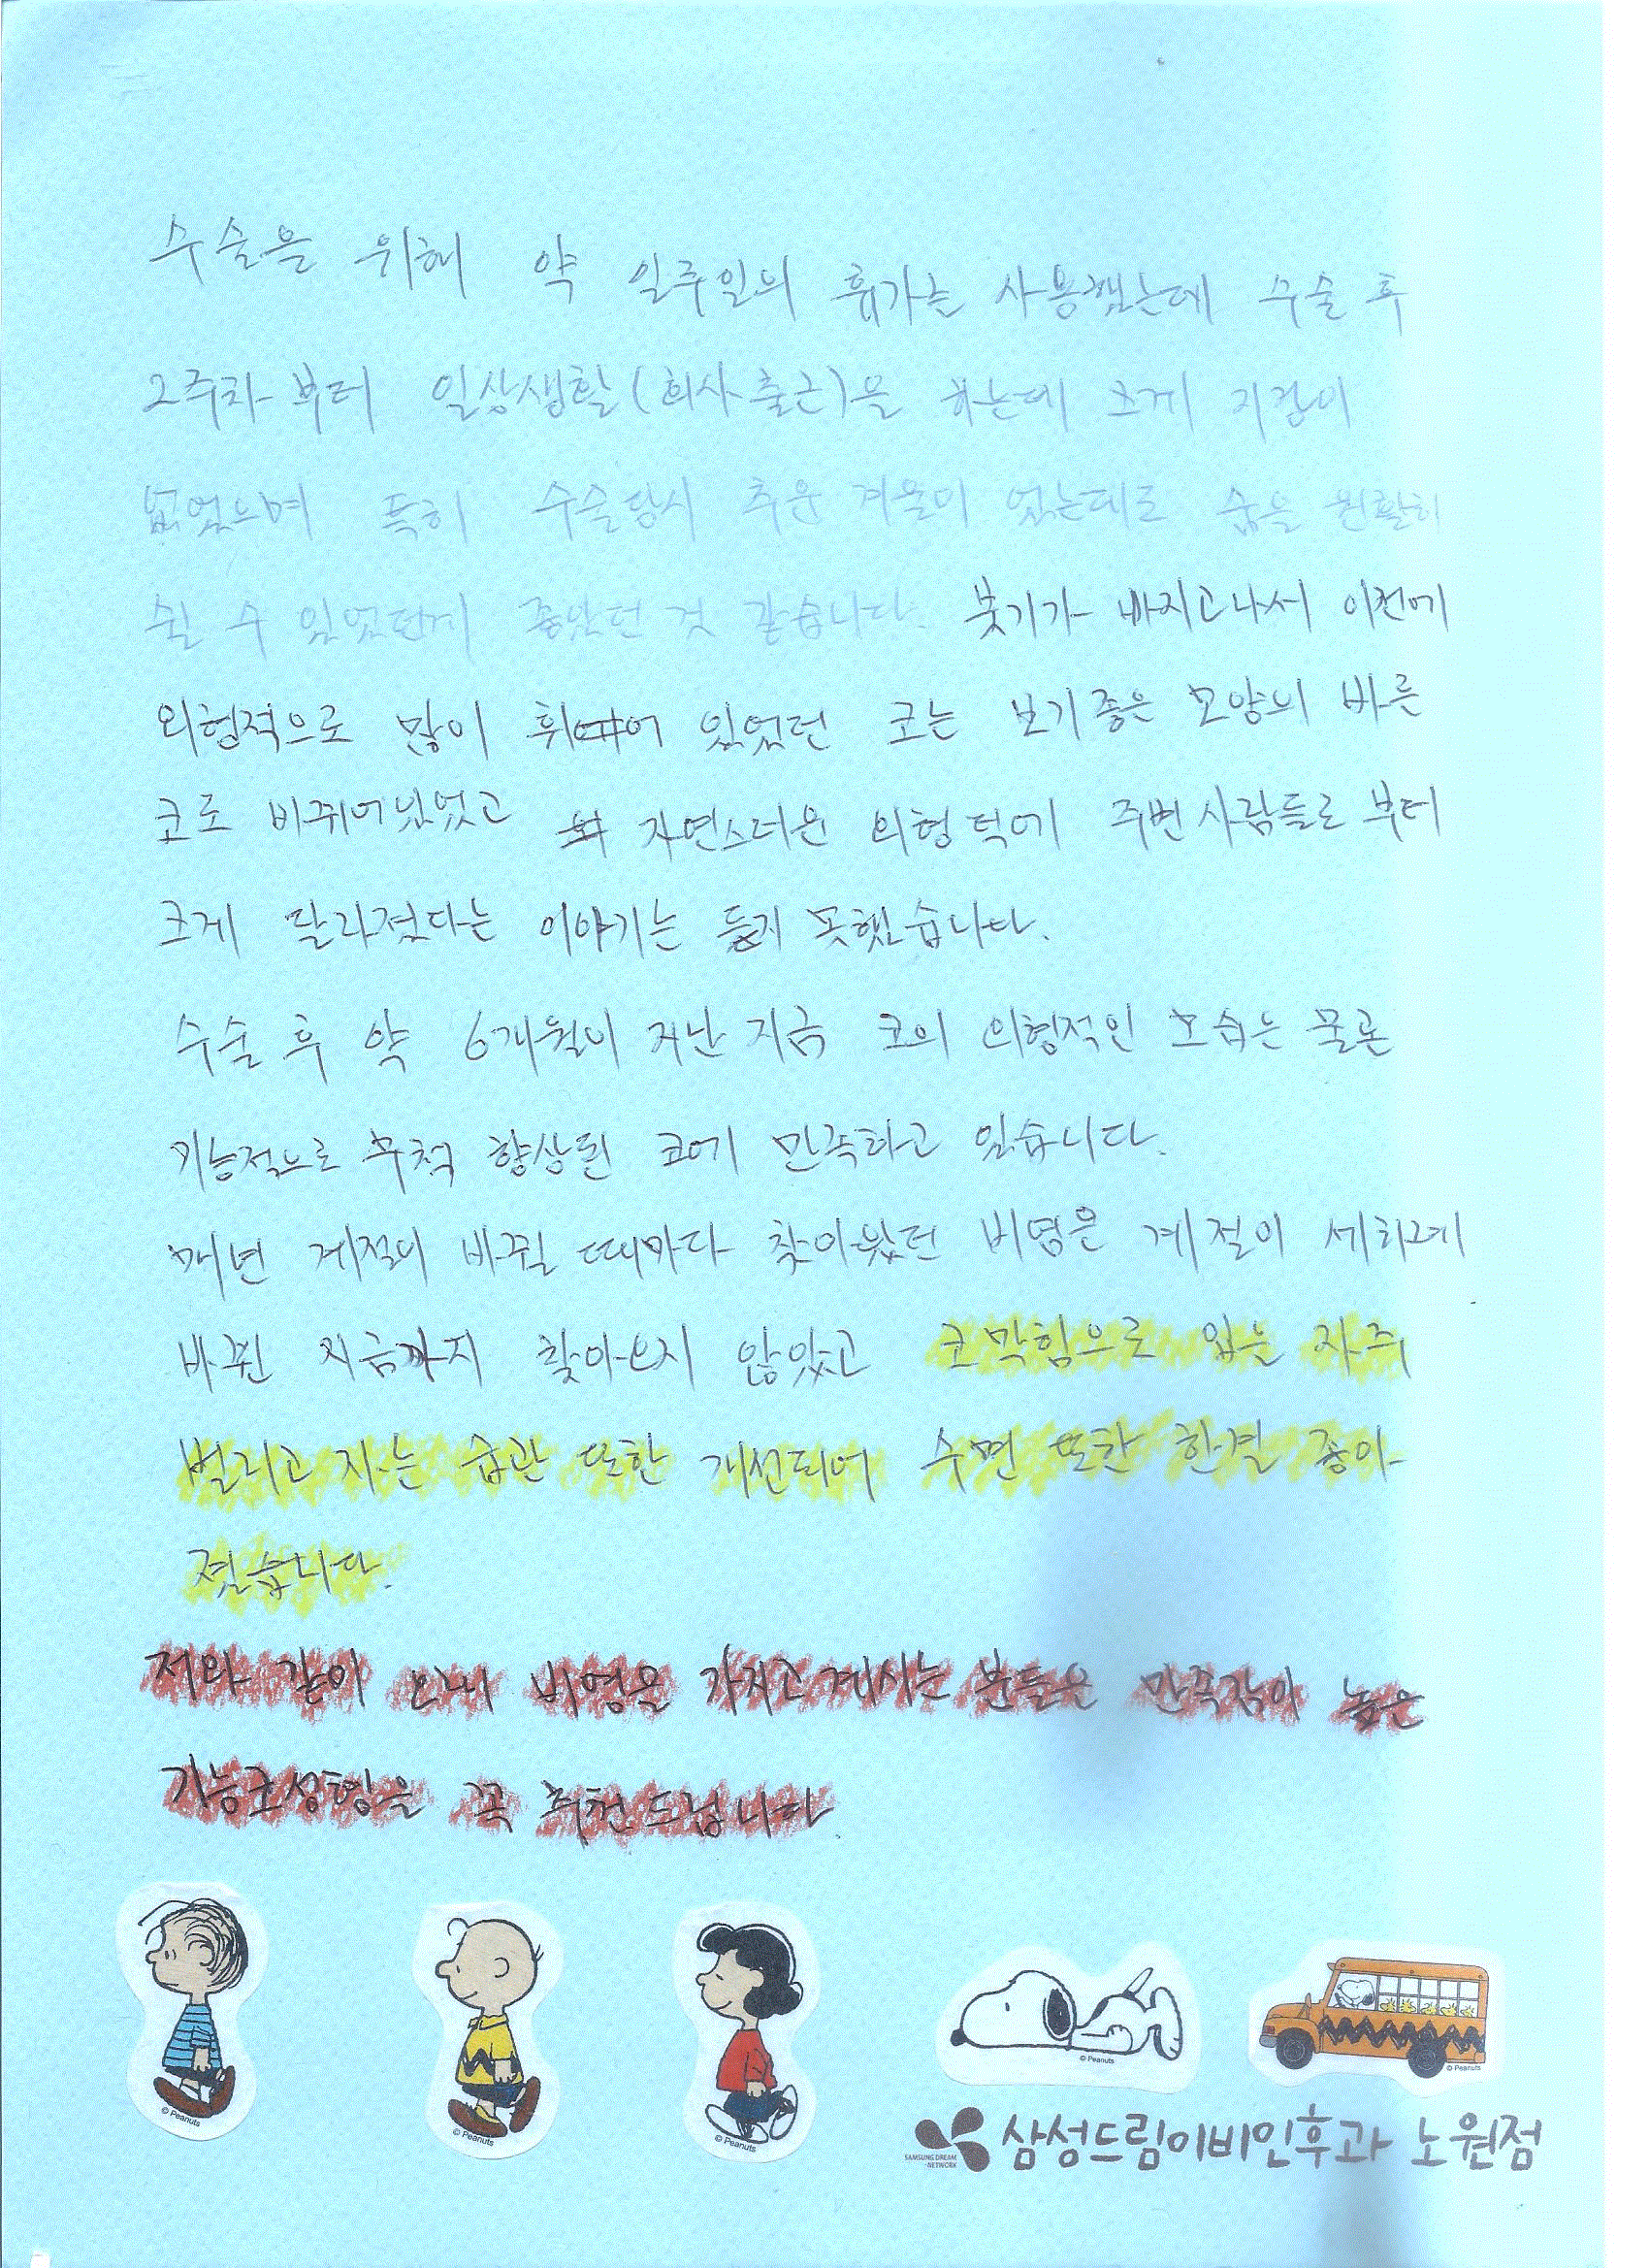 수술을 위해 약 일주일의 휴가는 사용했는데 수술 후
2주차부터 일상생활(회사출근)을 하는데 크게 지장이
없었으며 특히 수술당시 추운 겨울이 었는데도 숨을 원활히
쉴 수 있었던게 좋았던 것 같습니다. 붓기가 빠지고나서 이전에
외형적으로 많이 휘어 있었던 코는 보기좋은 모양의 바른
코로 바뀌어있었고 자연스러운 외형 덕에 주변 사람들로부터
크게 달라졌다는 이야기는 듣지 못했습니다.
수술 후 약 6개월이 지난 지금 코의 외형적인 모습은 물론
기능적으로 무척 향상된 코에 만족하고 있습니다.
매년 계절이 바뀔 때마다 찾아왔던 비염은 계절이 세하레
바뀐 지금까지 찾아오지 않았고 코막힘으로 입을 자주
벌리고 자는 습관 또한 개선되어 수면 또한 한결 좋아
졌습니다.
저와 같이 비염을 가지고 계시는 분들은 만족감이 높은
기능코성형을 꼭 추천드립니다
© Peanuts
© Peanuts
© Peanuts
© Peanuts
© Peanuts
SAMSUNG DREAM NETWORK
삼성드림이비인후과 노원점